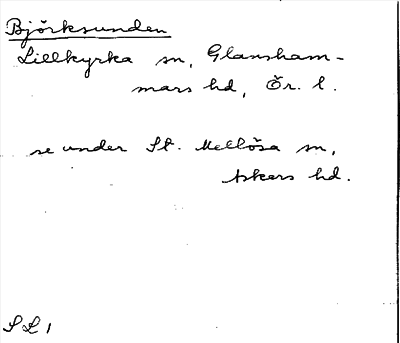 Björksunden
Lillkyrka sn, Glansham-
mars hd, Ör. l.
se under St. Mellösa sn,
Askers hd.
SL1